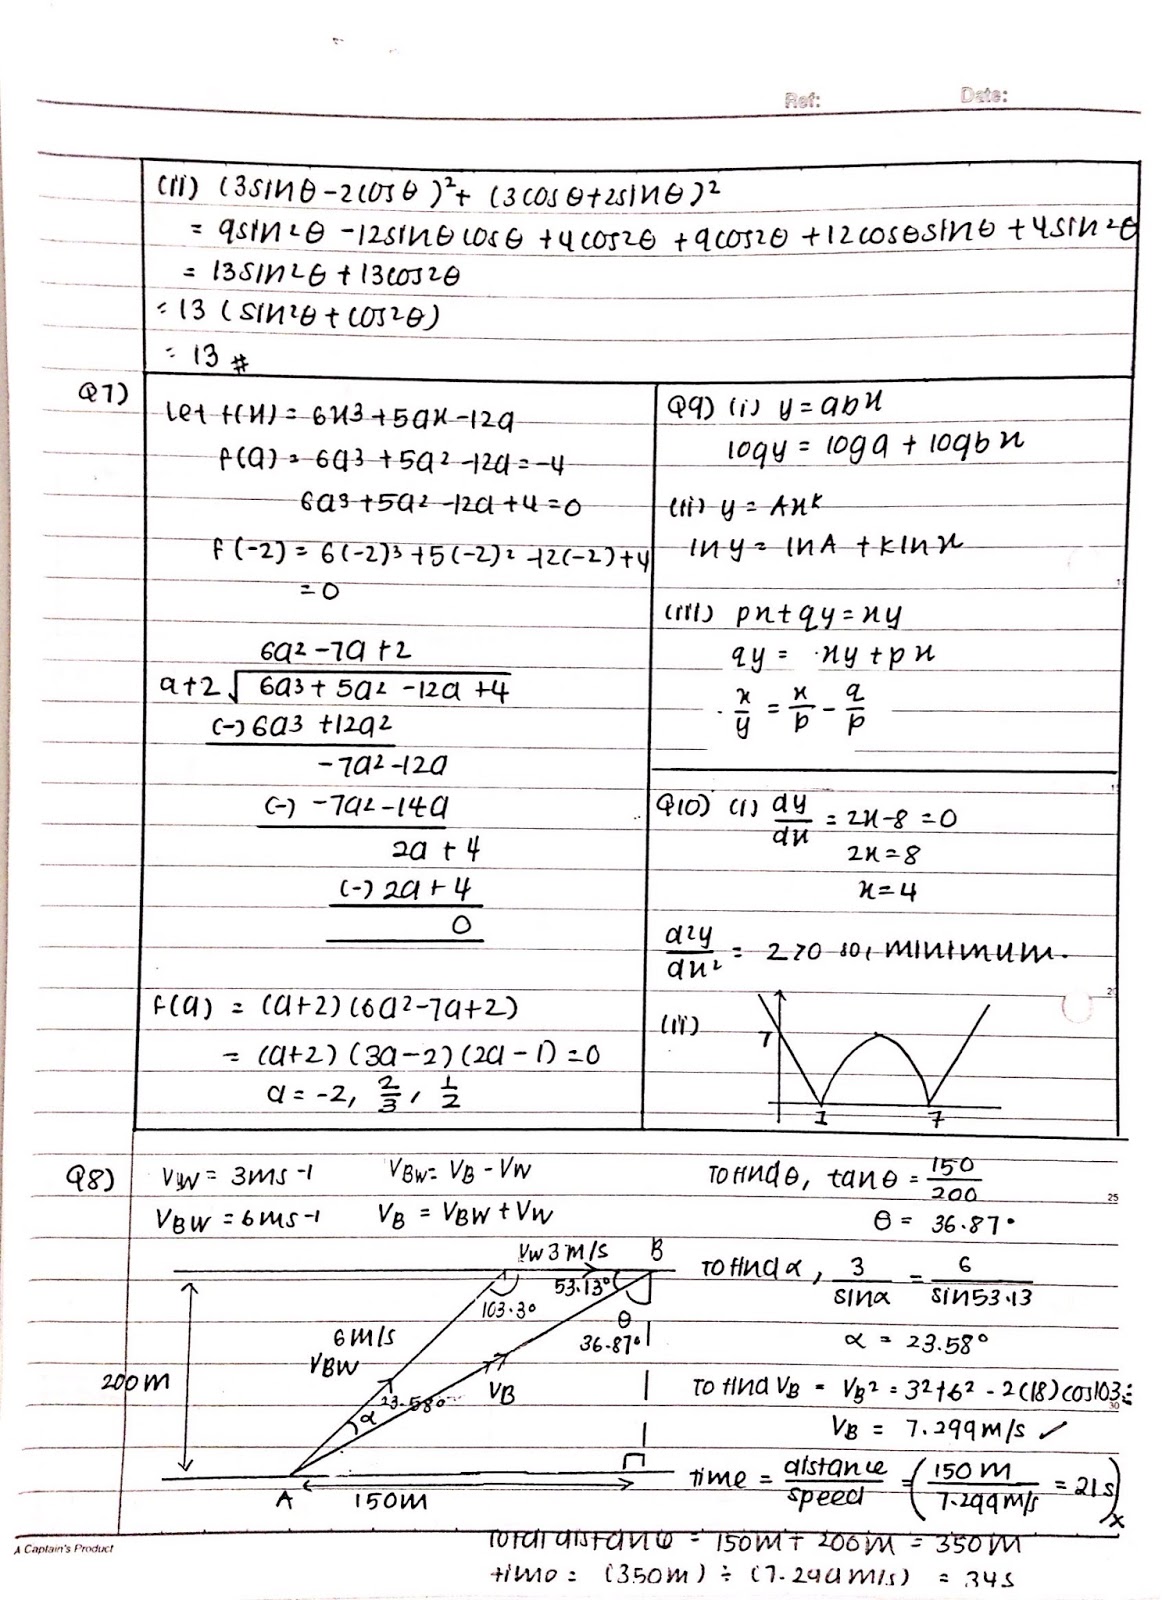 Ref: Date:
(ii) (3sinθ-2cosθ)²+ (3cosθ+2sinθ)²
= 9sin2θ -12sinθcosθ +4cos2θ +9cos2θ +12cosθsinθ +4sin2θ
= 13sin2θ +13cos2θ
= 13 (sin2θ + cos2θ)
= 13 #
Q7)
Let f(x) = 6x3 +5ax -12a
f(a) = 6a3 +5a2 -12a = -4
6a3 +5a2 -12a +4 =0
f(-2) = 6(-2)3 +5(-2)2 -12(-2)+4
= 0
6a2 -7a +2
a+2 √ 6a3 + 5a2 -12a +4
(-) 6a3 +12a2
-7a2 -12a
(-) -7a2 -14a
2a + 4
(-) 2a + 4
0
f(a) = (a+2) (6a2-7a+2)
= (a+2) (3a-2) (2a-1) =0
a = -2, 2/3, 1/2
Q9) (i) y = abx
logy = loga + logb x
(ii) y = Axk
lny = lnA + klnx
(iii) px+qy = xy
qy = xy + px
x/y = x/p - q/p
Q10) (i) dy/dx = 2x-8 =0
2x=8
x=4
d2y/dx2 = 2>0 so, minimum.
(ii)
7
1 7
Q8) Vw = 3ms-1 VBW = VB - VW
VBW = 6ms-1 VB = VBW + VW
Vw 3m/s B
53.13°
103.3°
θ
36.87°
6m/s
VBW
200m
VB
α 23.58°
A 150m
To find θ, tanθ = 150/200
θ = 36.87°
To find α, 3/sinα = 6/sin53.13
α = 23.58°
To find VB = VB2 = 32+62 - 2(18)cos103.3
VB = 7.299m/s ✓
time = distance/speed = (150m/7.299m/s = 21s)x
Total distance = 150m + 200m = 350m
time = (350m) ÷ (7.299m/s) = 34s
A Captain's Product
10
15
20
25
30